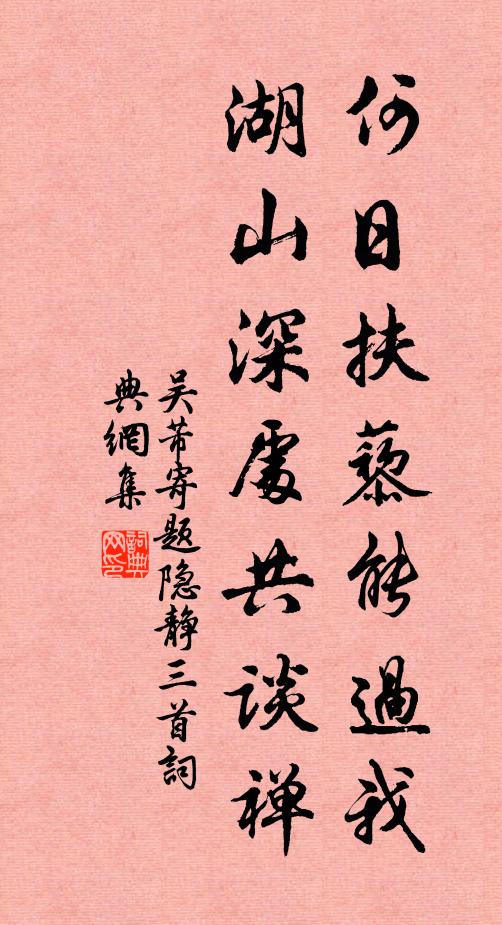 何日扶藜能過我
湖山深處共谈禅
吴芾寄题隐静三首詞
典網集
詞典网印